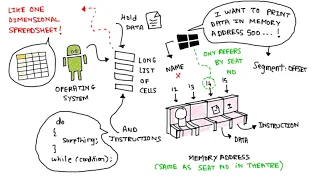 LIKE ONE
DIMENSIONAL
SPREADSHEET!
HOLD
DATA
OPERATING
SYSTEM
LONG
LIST
OF
CELLS
AND
INSTRUCTIONS
do
{
Something;
}
while (condition);
I WANT TO PRINT
DATA IN MEMORY
ADDRESS 500...!
NAME
X
ONY REFERS
BY SEAT
NO
Segment:OFFSET
12
13
14
15
INSTRUCTION
DATA
MEMORY ADDRESS
(SAME AS SEAT NO IN THEATRE)